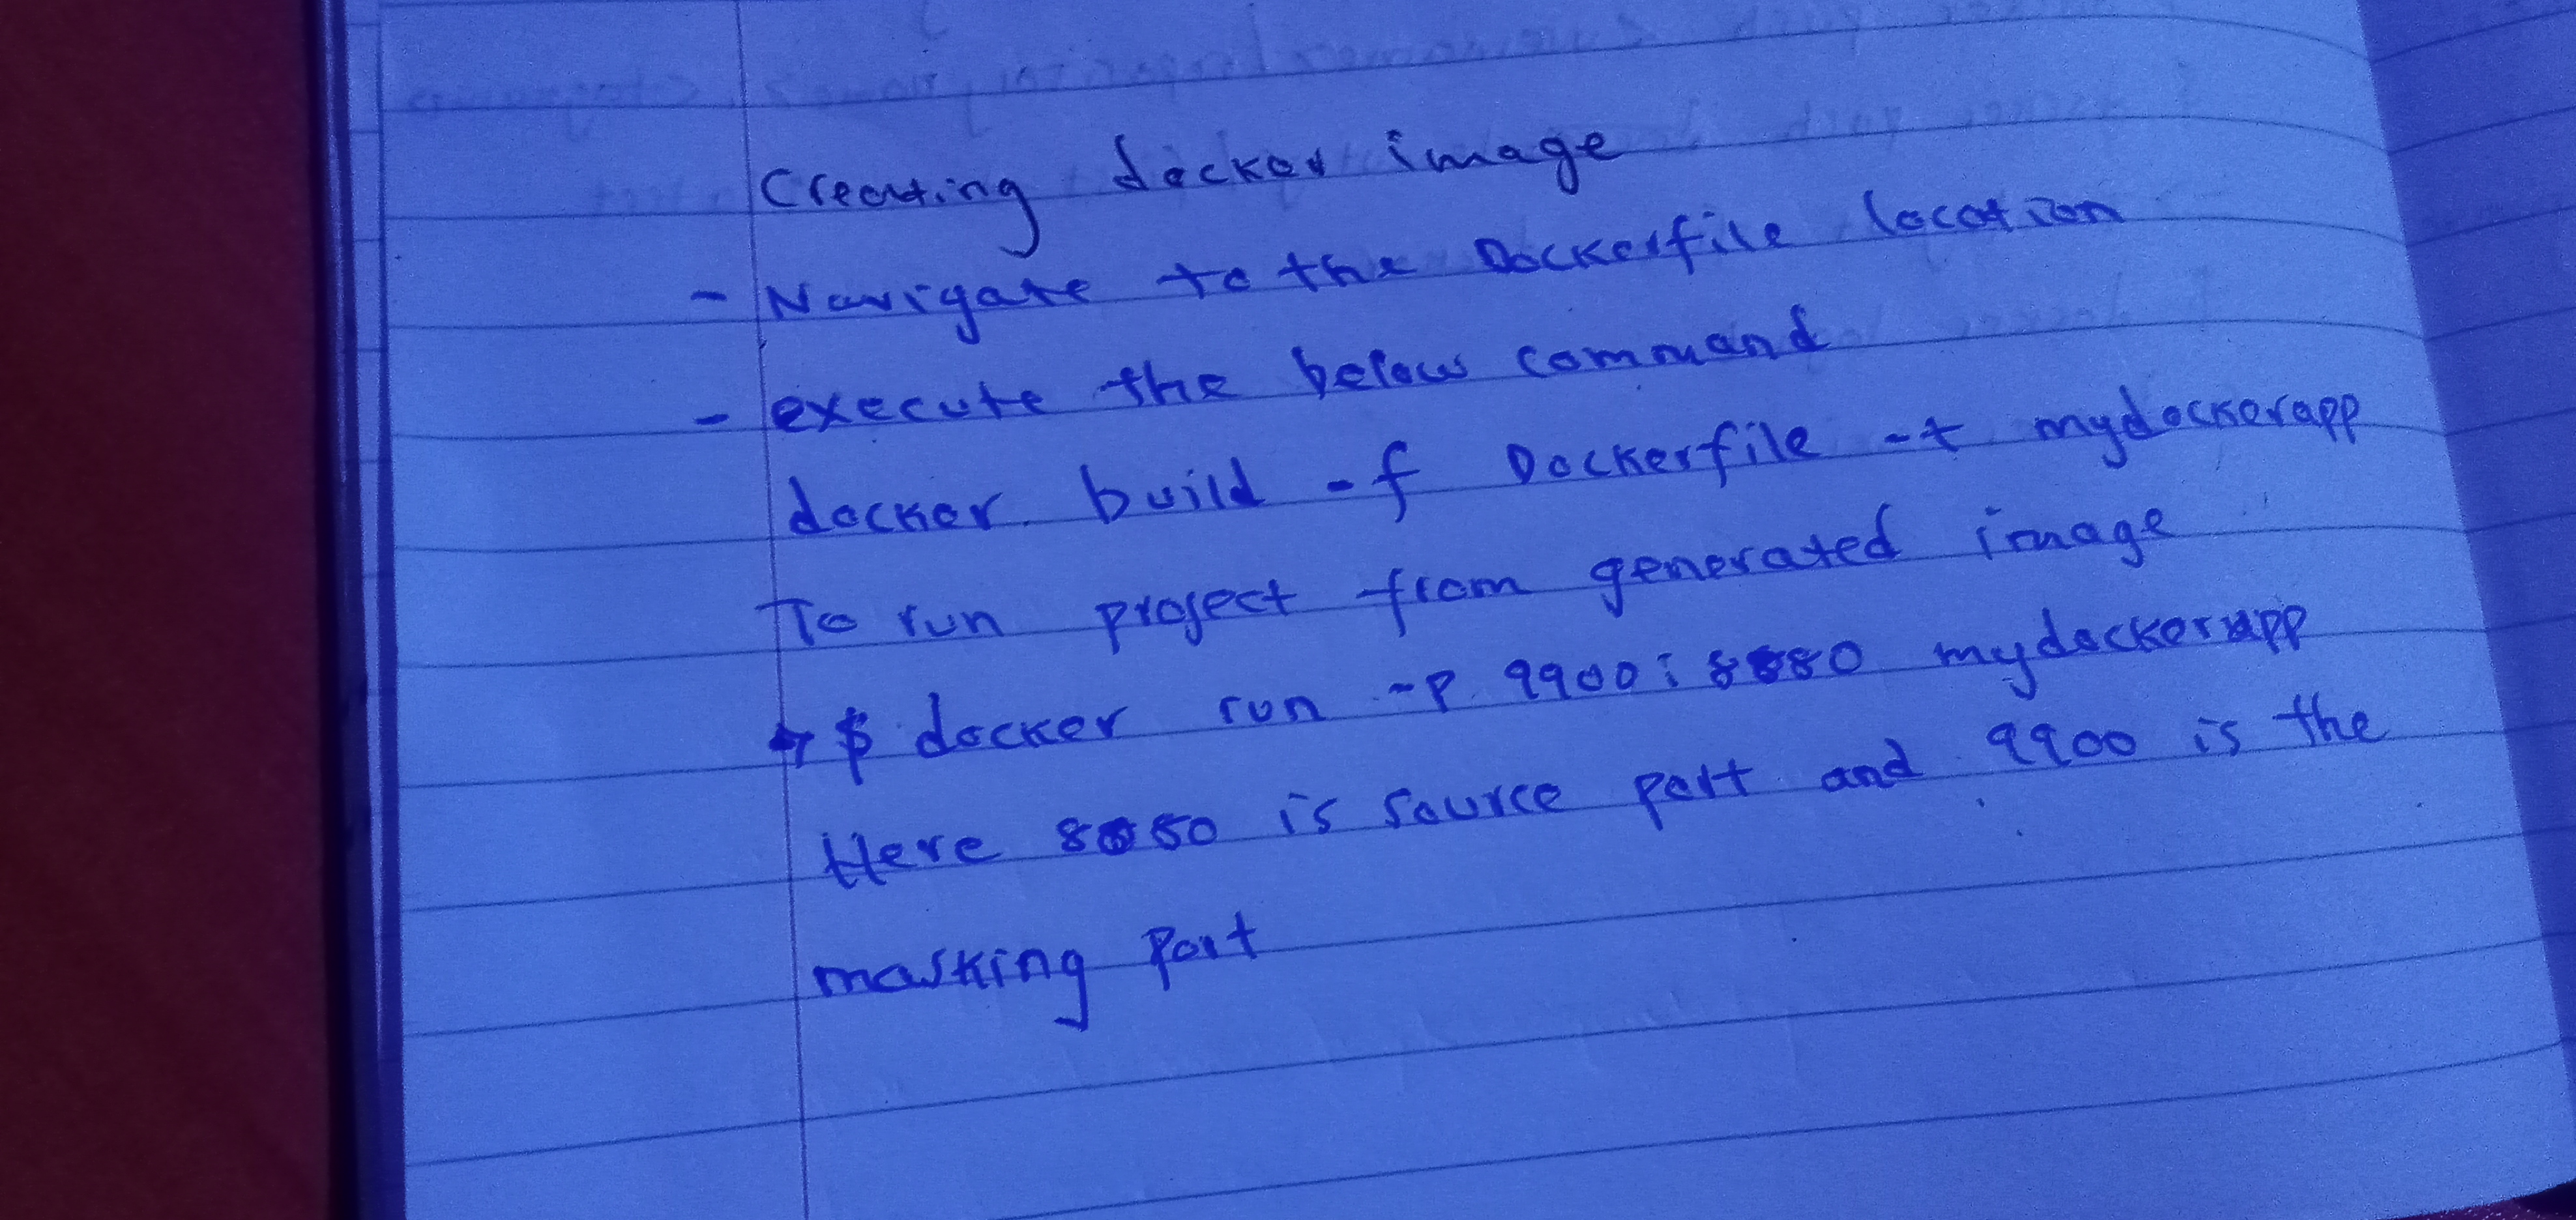 Creating docker image
- Navigate to the Dockerfile location
- execute the below command
docker build -f Dockerfile -t mydockerapp
To run project from generated image
$ docker run -p 9900:8080 mydockerapp
Here 8080 is source port and 9900 is the
masking port